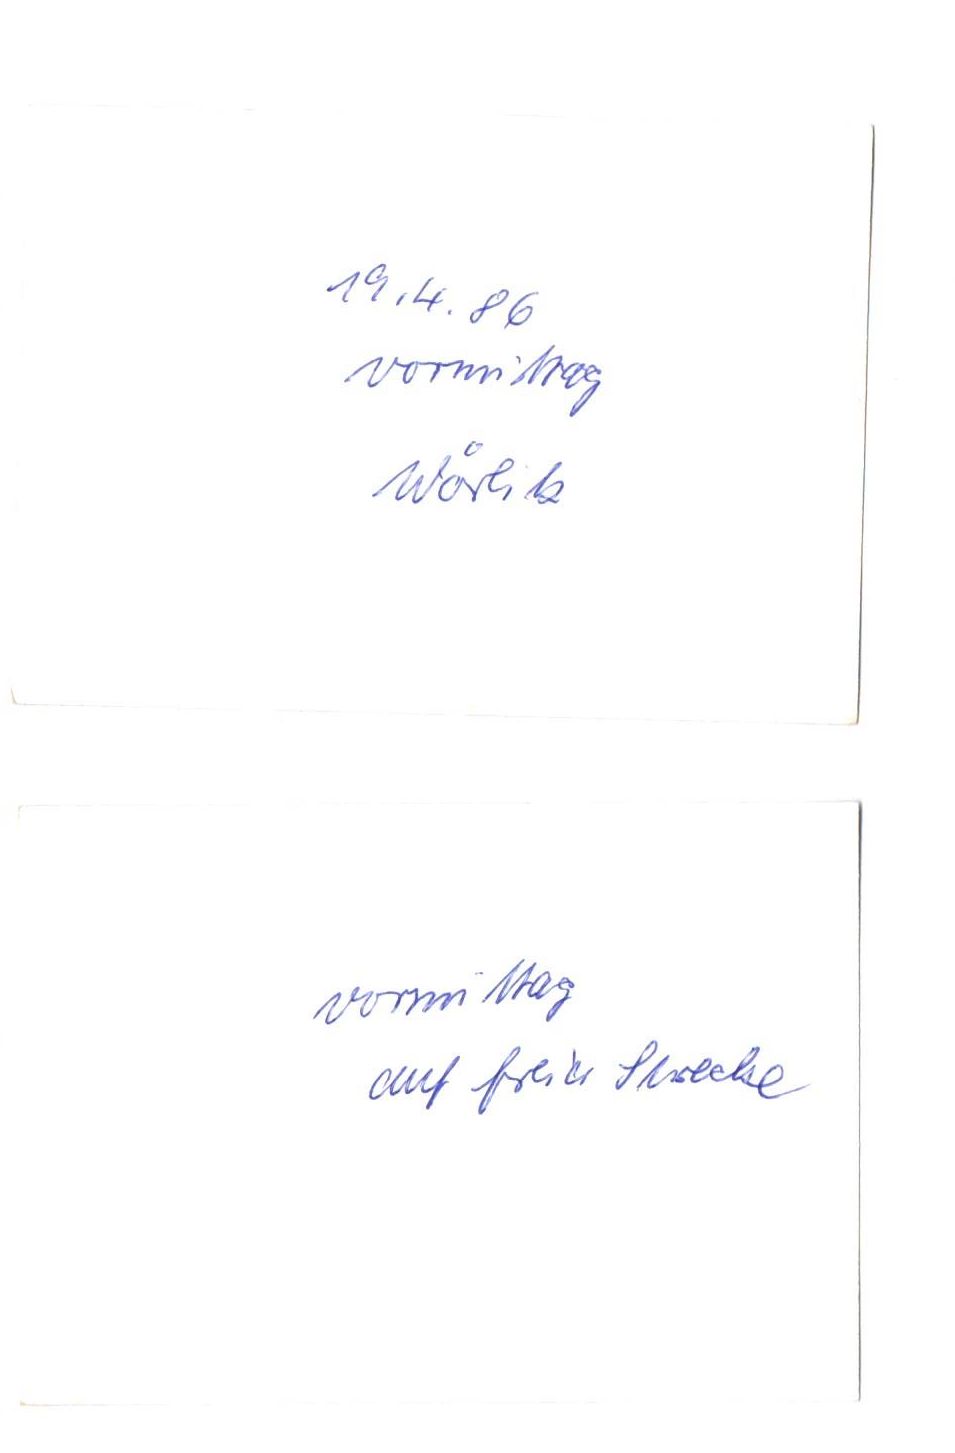 19.4.86
vormittag
Wörlitz
vormittag
auf freier Strecke